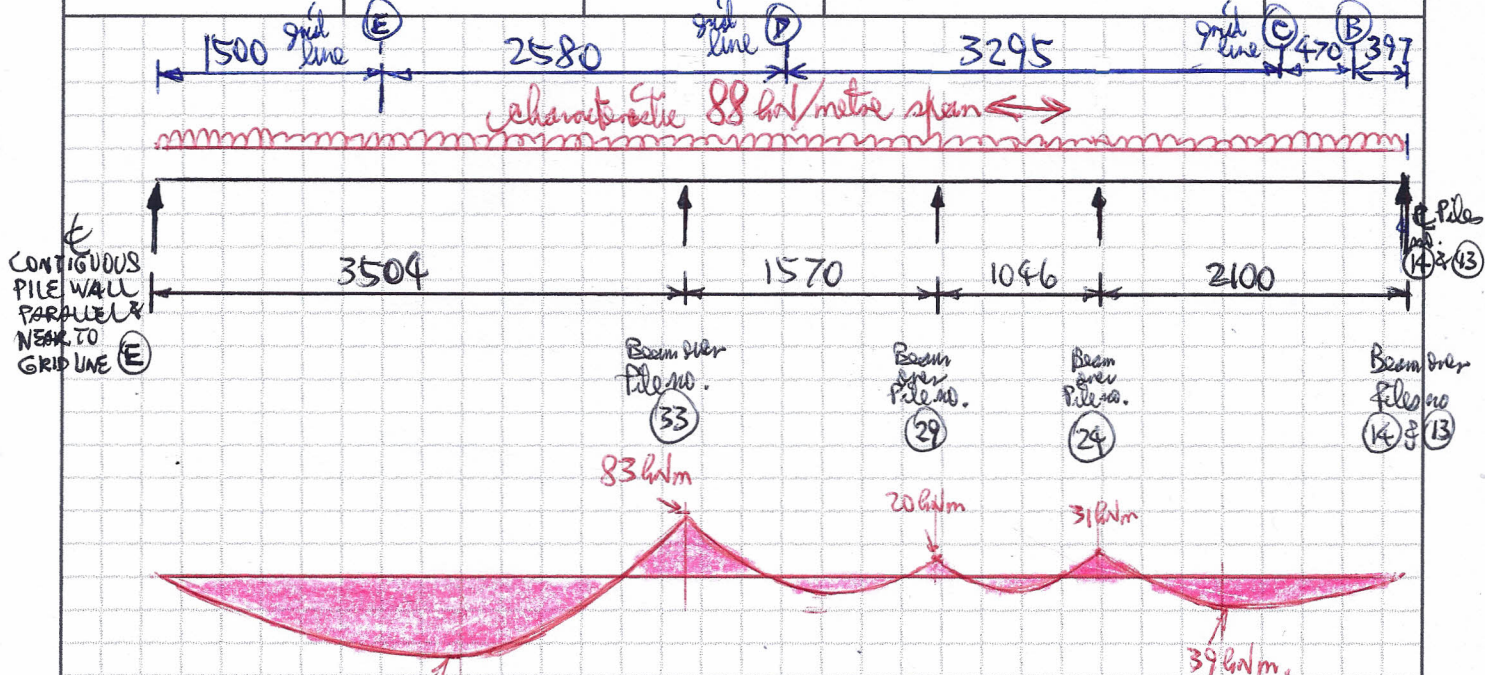 1500 grid line E 2580 grid line D 3295 grid line C 470 B 397
characteristic 88 kN/metre span
℄
CONTIGUOUS
PILE WALL
PARALLEL &
NEAR TO
GRID LINE E
3504 1570 1046 2100
℄ Piles
no.
14 & 13
Beam over
Pile no.
33
Beam
over
Pile no.
29
Beam
over
Pile no.
24
Beam over
Piles no
14 & 13
83 kNm
20 kNm
31 kNm
39 kNm.